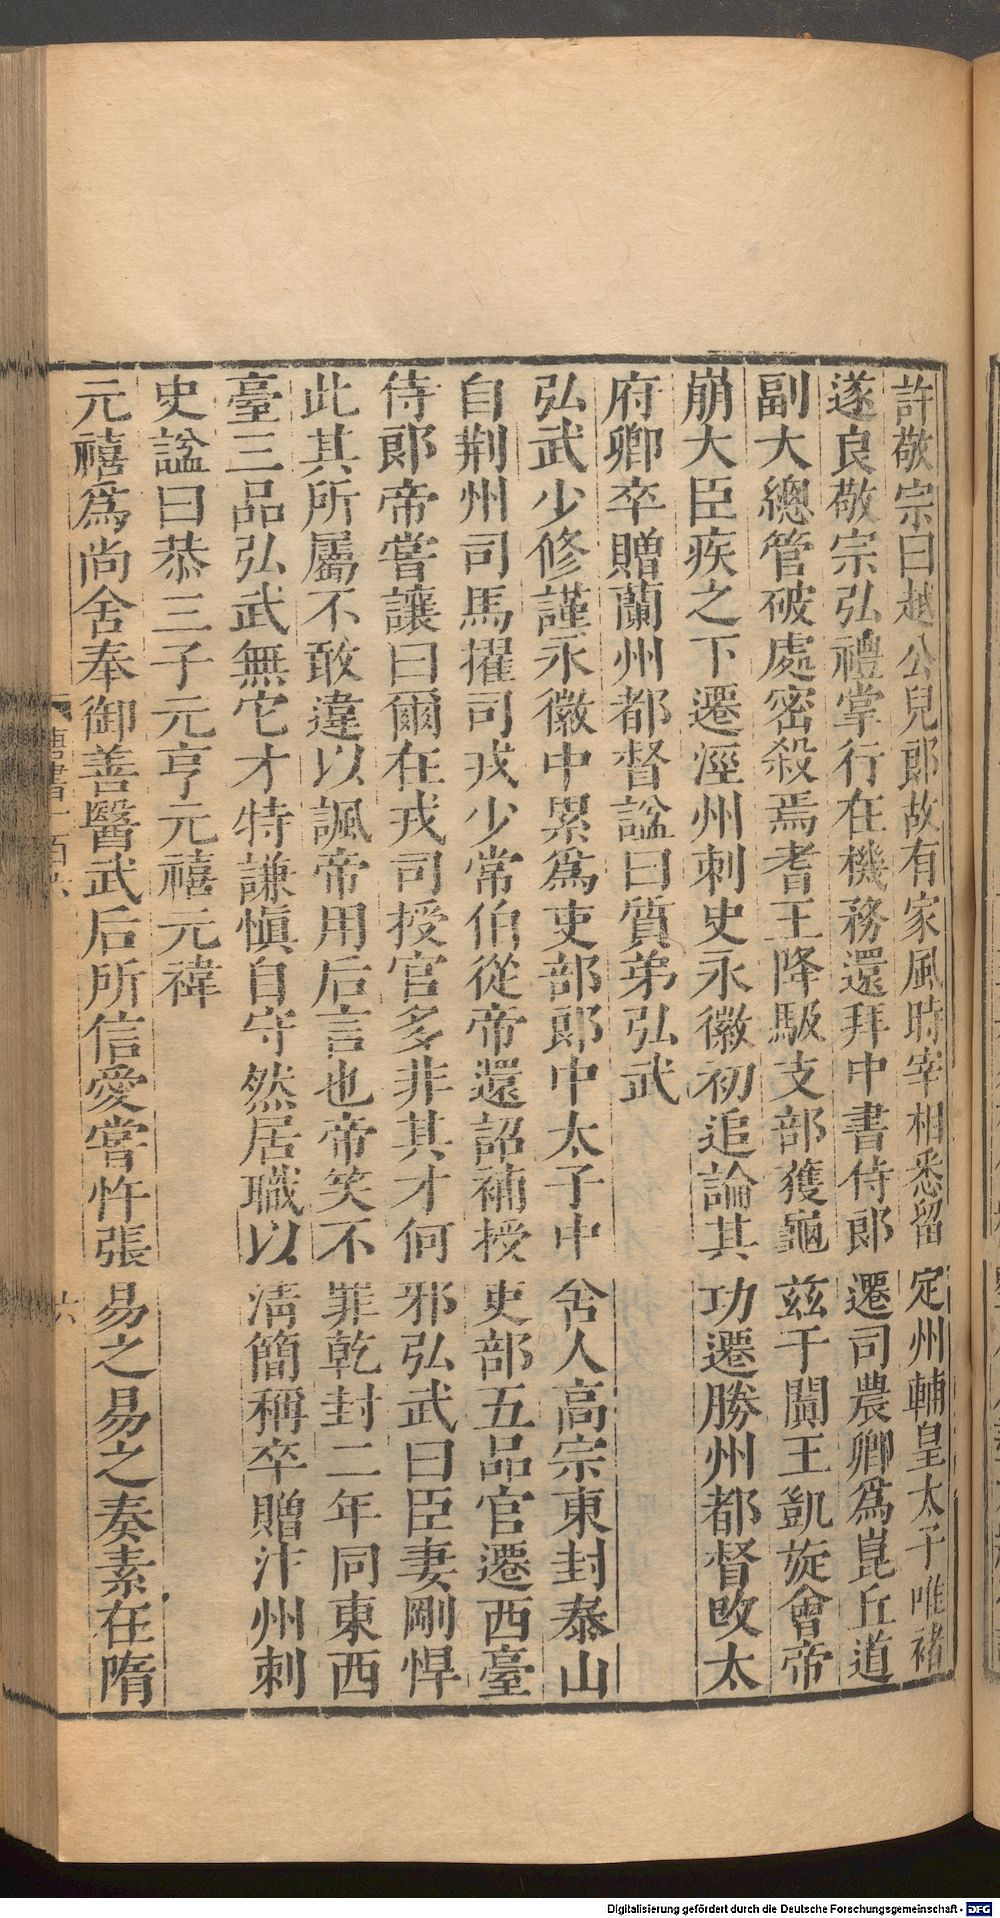 許敬宗曰越公兒郎故有家風時宰相悉留定州輔皇太子唯褚
遂良敬宗弘禮掌行在機務還拜中書侍郎遷司農卿爲崑丘道
副大總管破處密殺焉耆王降馺支部獲龜茲于闐王凱旋會帝
崩大臣疾之下遷涇州刺史永徽初追論其功遷勝州都督改太
府卿卒贈蘭州都督諡曰質弟弘武
弘武少修謹永徽中累爲吏部郎中太子中舍人高宗東封泰山
自荆州司馬擢司戎少常伯從帝還詔補授吏部五品官遷西臺
侍郎帝嘗讓曰爾在戎司授官多非其才何邪弘武曰臣妻剛悍
此其所屬不敢違以諷帝用后言也帝笑不罪乾封二年同東西
臺三品弘武無它才特謙愼自守然居職以清簡稱卒贈汴州刺
史諡曰恭三子元亨元禧元禕
元禧爲尚舍奉御善醫武后所信愛嘗忤張易之易之奏素在隋
唐書一百六
六
Digitalisierung gefördert durch die Deutsche Forschungsgemeinschaft - DFG